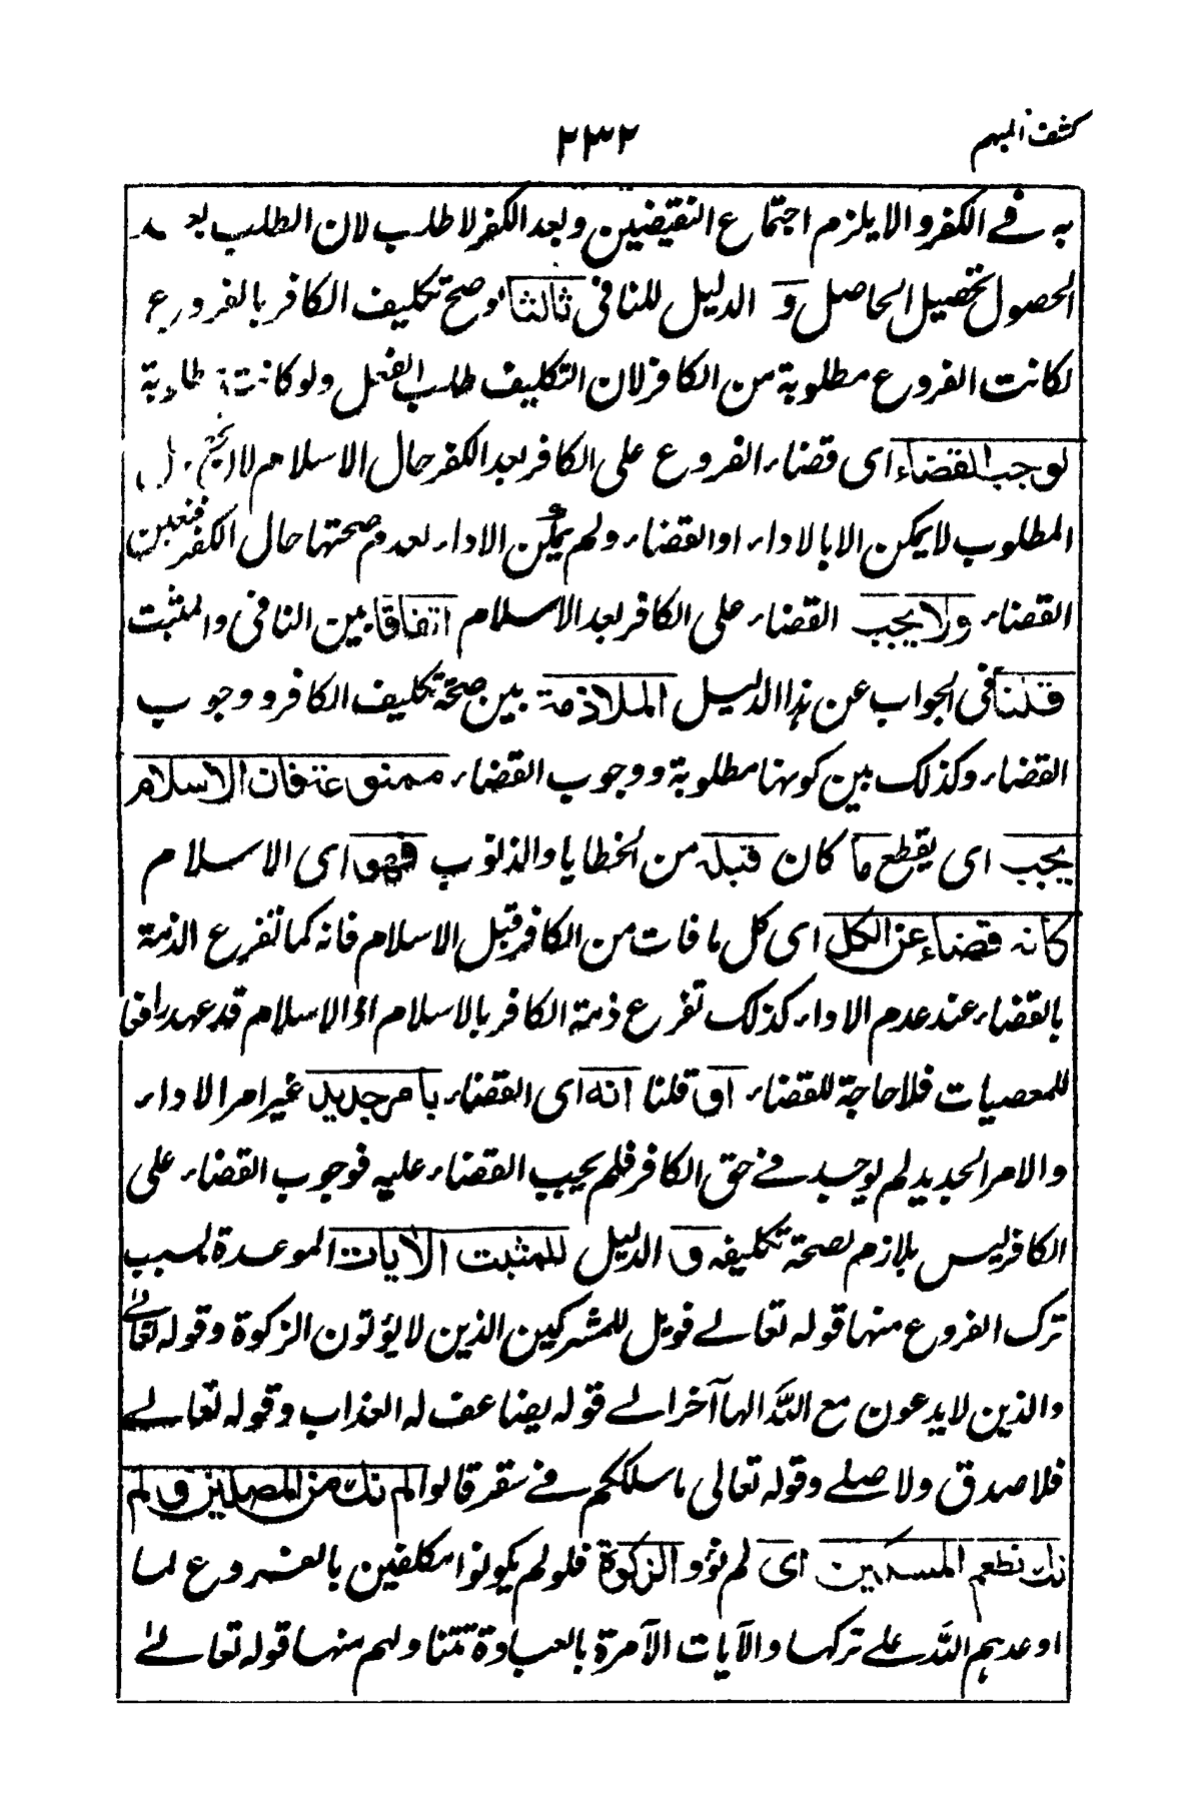 كشف المبهم
٢٣٢
به في الكفر والا يلزم اجتماع النقيضين وبعد الكفر لا طلب لان الطلب بعد
الحصول تحصيل الحاصل و الدليل للنافي ثالثا لو صح تكليف الكافر بالفروع
لكانت الفروع مطلوبة من الكافر لان التكليف طلب الفعل ولو كانت مطلوبة
لوجب القضاء اى قضاء الفروع على الكافر بعد الكفر حال الاسلام لان
المطلوب لا يمكن الا بالاداء او القضاء ولم يمكن الاداء لعدم صحتها حال الكفر فتعين
القضاء ولا يجب القضاء على الكافر بعد الاسلام اتفاقا بين النافي والمثبت
قلنا في الجواب عن هذا الدليل الملازمة بين صحة تكليف الكافر ووجوب
القضاء وكذلك بين كونها مطلوبة ووجوب القضاء ممنوعة فان الاسلام
يجب اى يقطع ما كان قبله من الخطايا والذنوب فهو اى الاسلام
كانه قضاء عن الكل اى كل ما فات من الكافر قبل الاسلام فانه كما تفرع الذمة
بالقضاء عند عدم الاداء كذلك تفرع ذمة الكافر بالاسلام اذ الاسلام قد عهد رافعا
للمعصيات فلا حاجة للقضاء او قلنا انه اى القضاء بامر جديد غير امر الاداء
والامر الجديد لم يوجد في حق الكافر فلم يجب القضاء عليه فوجوب القضاء على
الكافر ليس بلازم لصحة تكليفه و الدليل للمثبت الآيات الموعدة بسبب
ترك الفروع منها قوله تعالے فويل للمشركين الذين لا يؤتون الزكوة وقوله تعالے
والذين لا يدعون مع الله الها آخر الے قوله يضاعف له العذاب وقوله تعالے
فلا صدق ولا صلے وقوله تعالى ما سلككم في سقر قالوا لم نك من المصلين و لم
نك نطعم المسكين اى لم نؤد الزكوة فلو لم يكونوا مكلفين بالفروع لما
اوعدهم الله علے تركها والآيات الآمرة بالعبادة تتناولهم منها قوله تعالے